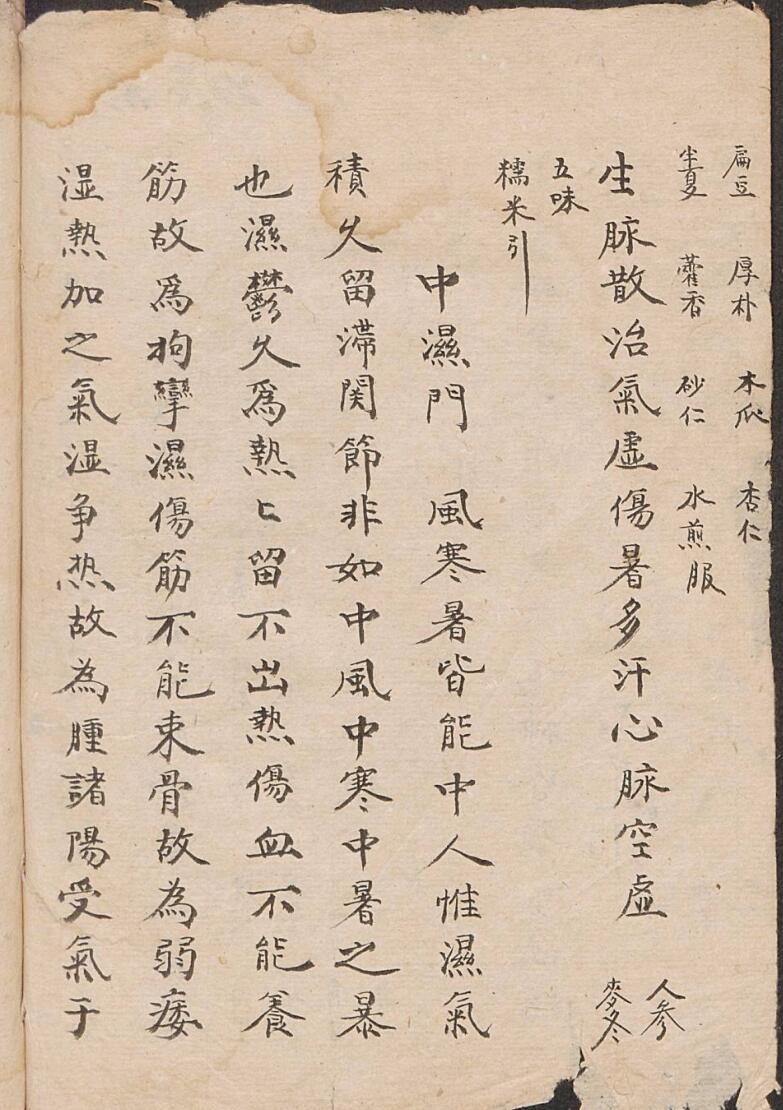 扁豆　厚朴　木瓜　杏仁
半夏　藿香　砂仁　水煎服
生脉散治氣虛傷暑多汗心脉空虛　人參
麥冬
五味
糯米引
中濕門　風寒暑皆能中人惟濕氣
積久留滯関節非如中風中寒中暑之暴
也濕鬱久爲熱〻留不出熱傷血不能養
筋故爲拘攣濕傷筋不能束骨故為弱痿
湿熱加之氣湿争热故為腫諸陽受氣于